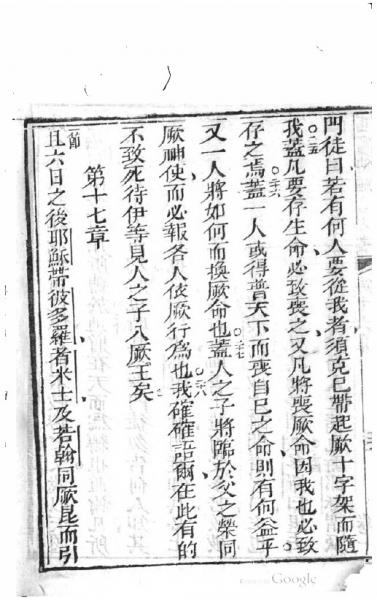 門徒曰若有何人要從我者須克己帶起厥十字架而隨
我○二五蓋凡要存生命必致喪之又凡將喪厥命因我也必致
存之焉○二六蓋一人或得普天下而喪自己之命則有何益乎
又一人將如何而換厥命也○二七蓋人之子將臨於父之榮同
厥神使而必報各人依厥行為也○二八我確確語爾在此有的
不致死待伊等見人之子入厥王矣
第十七章
一節且六日之後耶穌帶彼多羅者米士及若翰同厥昆而引
Google